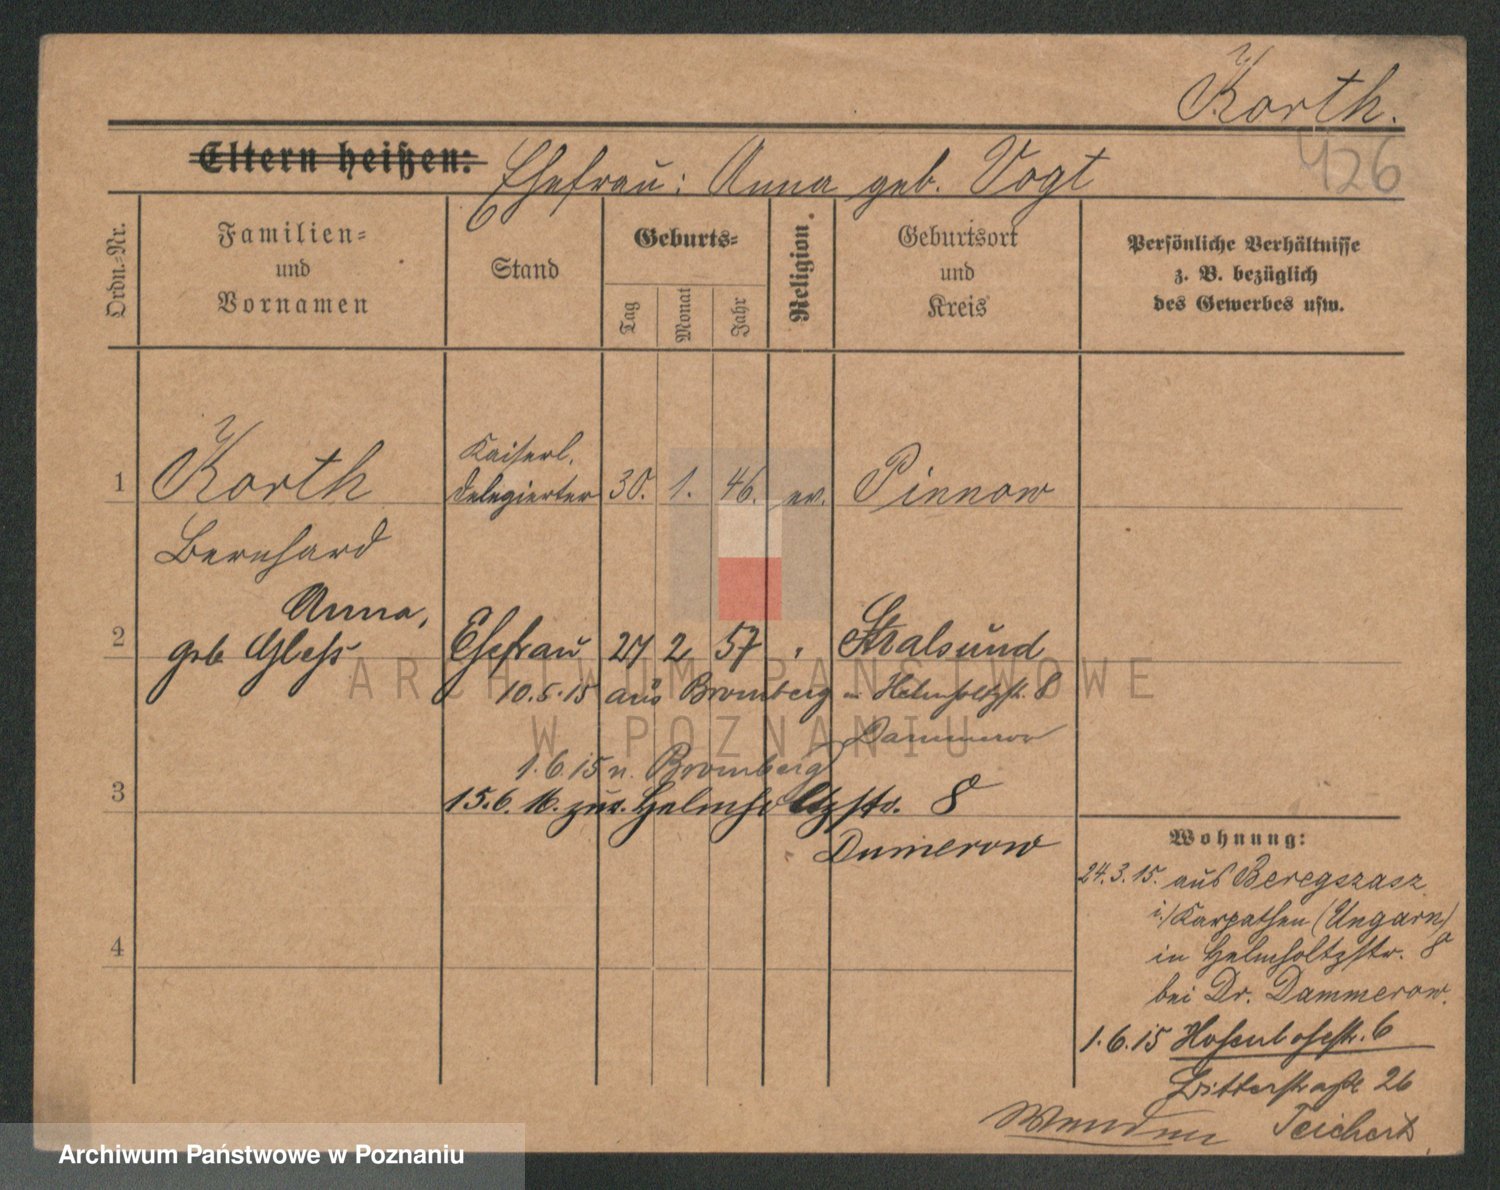 Korth.
426
Eltern heißen: Ehefrau: Anna geb. Vogt
Ordn.-Nr.
Familien-
und
Vornamen
Stand
Geburts-
Tag
Monat
Jahr
Religion.
Geburtsort
und
Kreis
Persönliche Verhältnisse
z. B. bezüglich
des Gewerbes usw.
Kaiserl.
1 Korth Delegierter 30. 1. 46. ev. Pinnow
Bernhard
Anna,
2 geb Ehefrau 27 2 57 " Stralsund
10.5.15 aus Bromberg in Helmholtzstr. 8
Dammerow
1.6.15 n. Bromberg
3 15.6.16. zur. Helmholtzstr. 8
Dumerow
4
Wohnung:
24.3.15. aus Beregszasz
i/Karpathen (Ungarn)
in Helmholtzstr. 8
bei Dr. Dammerow.
1.6.15 6
Ritterstraße 26
Wenden Teichert
ARCHIWUM PAŃSTWOWE
W POZNANIU
Archiwum Państwowe w Poznaniu